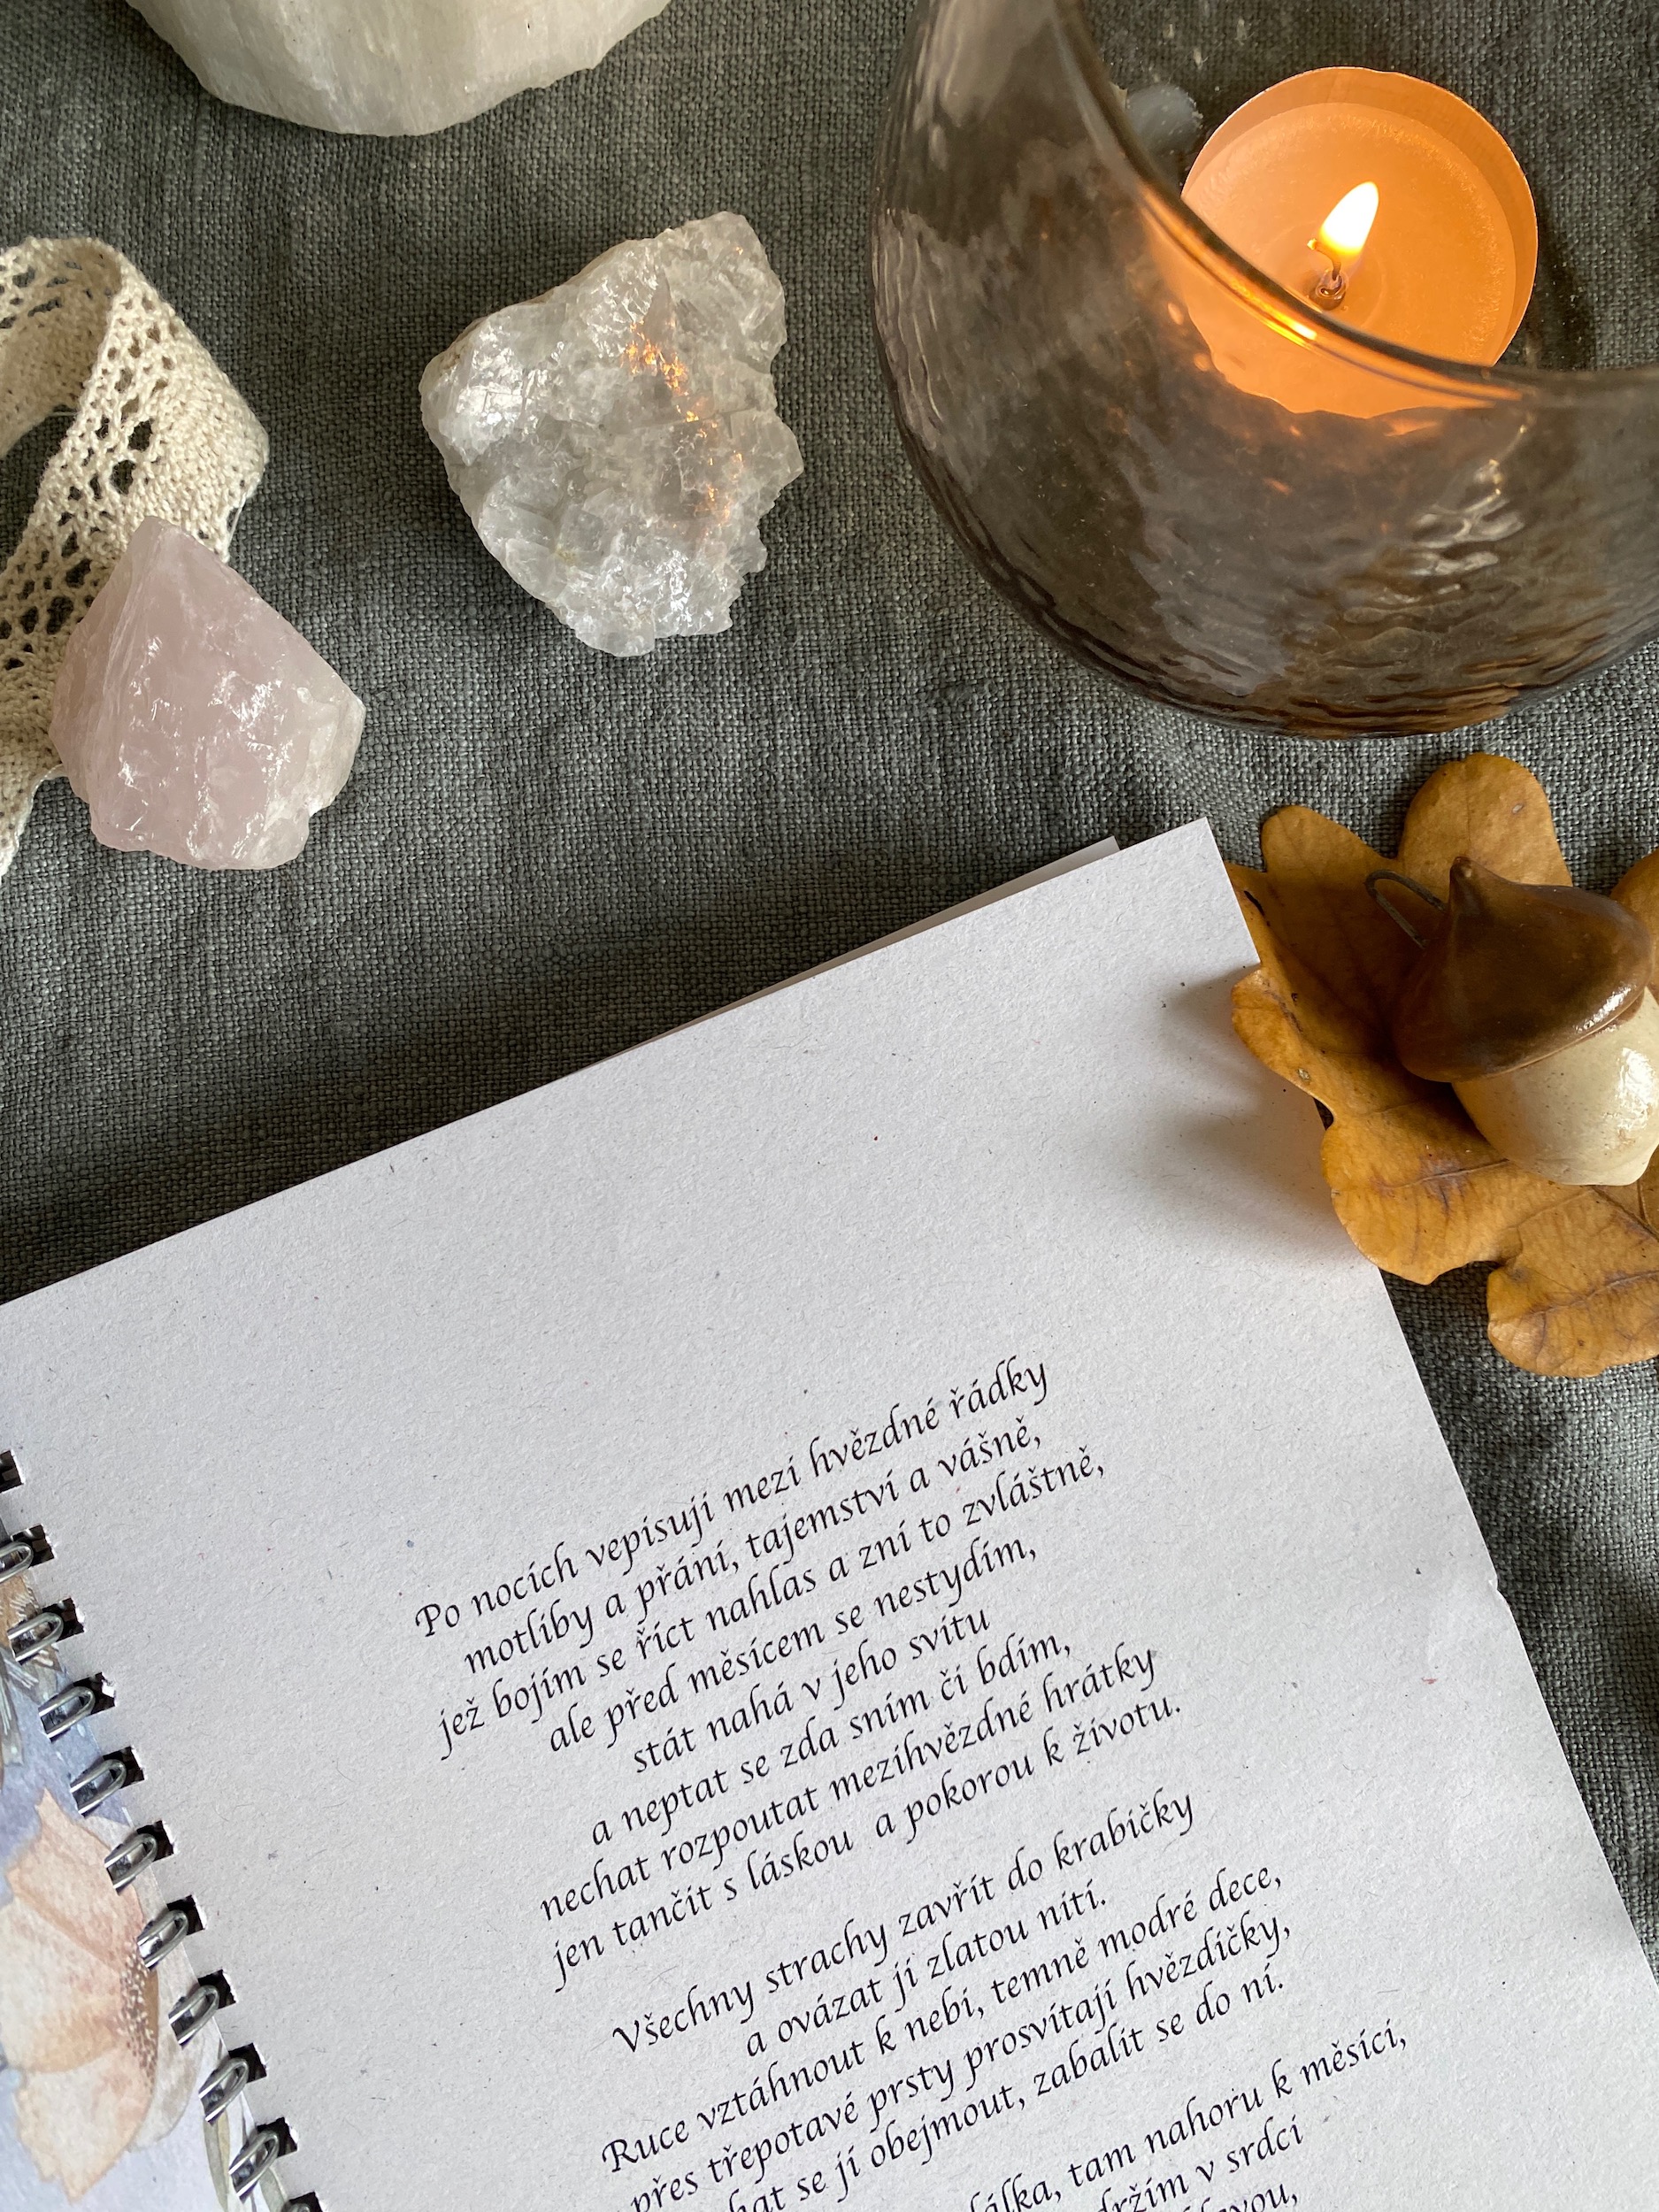 Po nocích vepisuji mezi hvězdné řádky
motliby a přání, tajemství a vášně,
jež bojím se říct nahlas a zní to zvláštně,
ale před měsícem se nestydím,
stát nahá v jeho svitu
a neptat se zda sním či bdím,
nechat rozpoutat mezihvězdné hrátky
jen tančit s láskou a pokorou k životu.
Všechny strachy zavřít do krabičky
a ovázat ji zlatou nití.
Ruce vztáhnout k nebi, temně modré dece,
přes třepotavé prsty prosvítají hvězdičky,
se jí obejmout, zabalit se do ní.
tam nahoru k měsíci,
držím v srdci